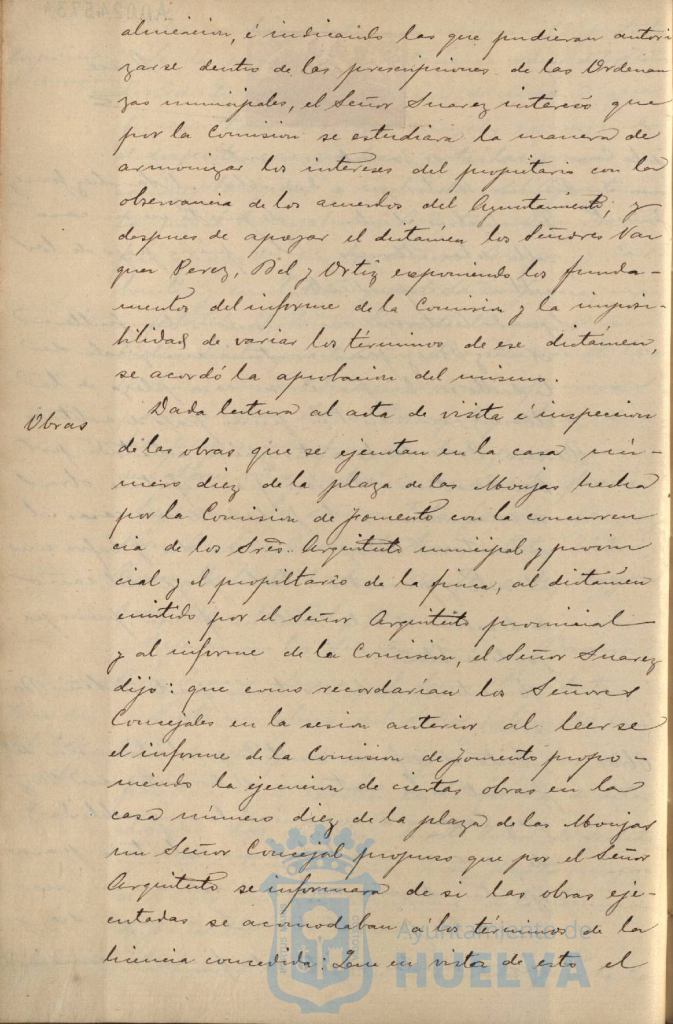 alineacion, é indicando las que pudieran autori
zarse dentro de las prescripciones de las Ordenan
zas municipales, el Señor Suarez interesó que
por la Comision se estudiara la manera de
armonizar los intereses del propietario con la
observancia de los acuerdos del Ayuntamiento; y
despues de apoyar el dictámen los Señores Vaz
quez Perez, Bel y Ortiz exponiendo los funda-
mentos del informe de la Comision y la imposi-
bilidad de variar los términos de ese dictámen,
se acordó la aprobacion del mismo.
Obras
Dada lectura al acta de visita é inspeccion
de las obras que se ejecutan en la casa nú-
mero diez de la plaza de las Monjas hecha
por la Comision de Fomento con la concurren
cia de los Sres. Arquitecto municipal y provin
cial y el propiltario de la finca, al dictámen
emitido por el Señor Arquitecto provincial
y al informe de la Comision, el Señor Suarez
dijo: que como recordarian los Señores
Concejales en la sesion anterior al leerse
el informe de la Comision de Fomento propo-
niendo la ejecucion de ciertas obras en la
casa número diez de la plaza de las Monjas
un Señor Concejal propuso que por el Señor
Arquitecto se informara de si las obras eje-
cutadas se acomodaban á los términos de la
licencia concedida: Que en vista de esto el
Ayuntamiento de
HUELVA